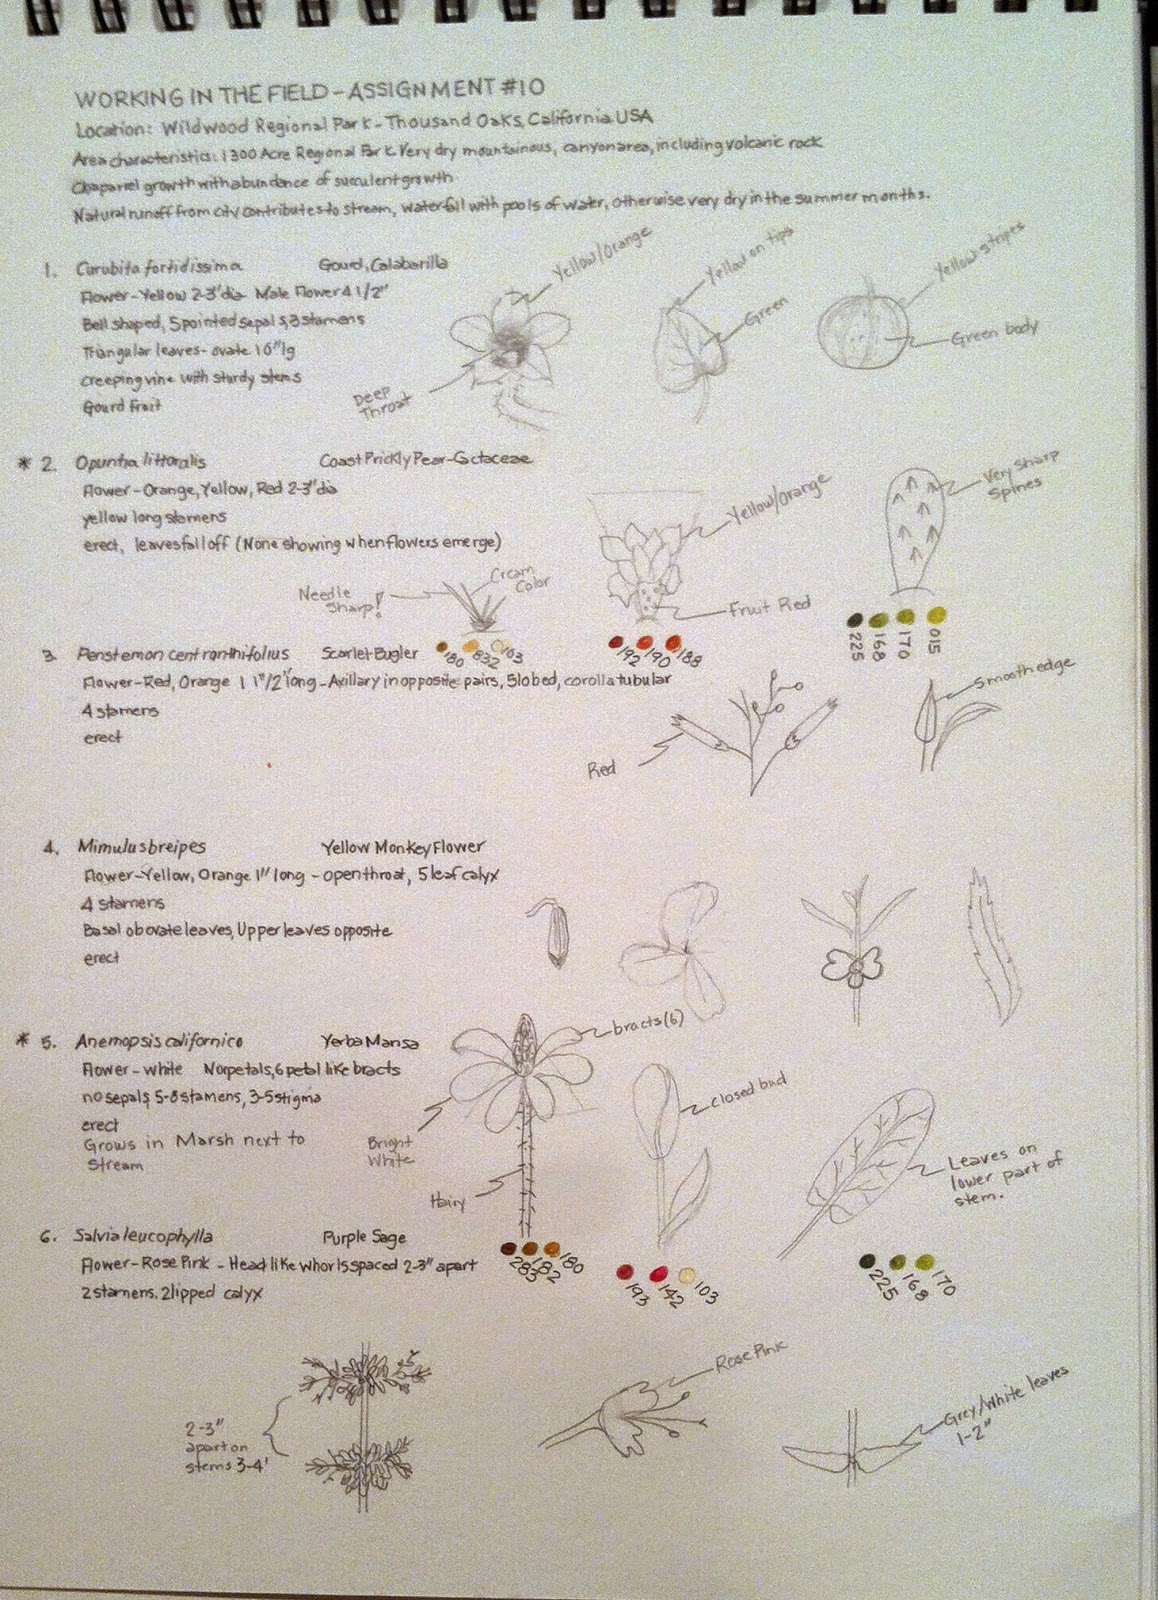 WORKING IN THE FIELD - ASSIGNMENT #10
Location: Wildwood Regional Park - Thousand Oaks, California USA
Area characteristics: 1300 Acre Regional Park. Very dry mountainous, canyon area, including volcanic rock
Chaparrel growth with abundance of succulent growth
Natural runoff from city contributes to stream, waterfall with pools of water, otherwise very dry in the summer months.
1. Curubita fortidissima Gourd, Calabarilla
Flower - Yellow 2-3" dia Male Flower 4 1/2"
Bell shaped, 5 pointed sepals, 3 stamens
Triangular leaves - ovate 10" lg
creeping vine with sturdy stems
Gourd Fruit
Yellow/Orange
Deep
Throat
Yellow on tips
Green
Yellow stripes
Green body
* 2. Opuntia littoralis Coast Prickly Pear - Cactaceae
Flower - Orange, Yellow, Red 2-3" dia
yellow long stamens
erect, leaves fall off (None showing when flowers emerge)
Needle
Sharp!
Cream
Color
180 832 103
Yellow/Orange
Fruit Red
192 190 188
Very Sharp
Spines
225 168 170 015
3. Penstemon centranthifolius Scarlet Bugler
Flower - Red, Orange 1 1"/2" long - Axillary in opposite pairs, 5 lobed, corolla tubular
4 stamens
erect
Red
Smooth edge
4. Mimulus breipes Yellow Monkey Flower
Flower - Yellow, Orange 1" long - open throat, 5 leaf calyx
4 stamens
Basal obovate leaves, Upper leaves opposite
erect
* 5. Anemopsis californica Yerba Mansa
Flower - white No petals, 6 petal like bracts
no sepals, 5-8 stamens, 3-5 stigma
erect
Grows in Marsh next to
Stream
bracts (6)
Bright
White
Hairy
283 182 180
closed bud
193 142 103
Leaves on
lower part of
stem.
225 168 170
6. Salvia leucophylla Purple Sage
Flower - Rose Pink - Head like whorls spaced 2-3" apart
2 stamens. 2 lipped calyx
2-3"
apart on
stems 3-4'
Rose Pink
Grey/White leaves
1-2"